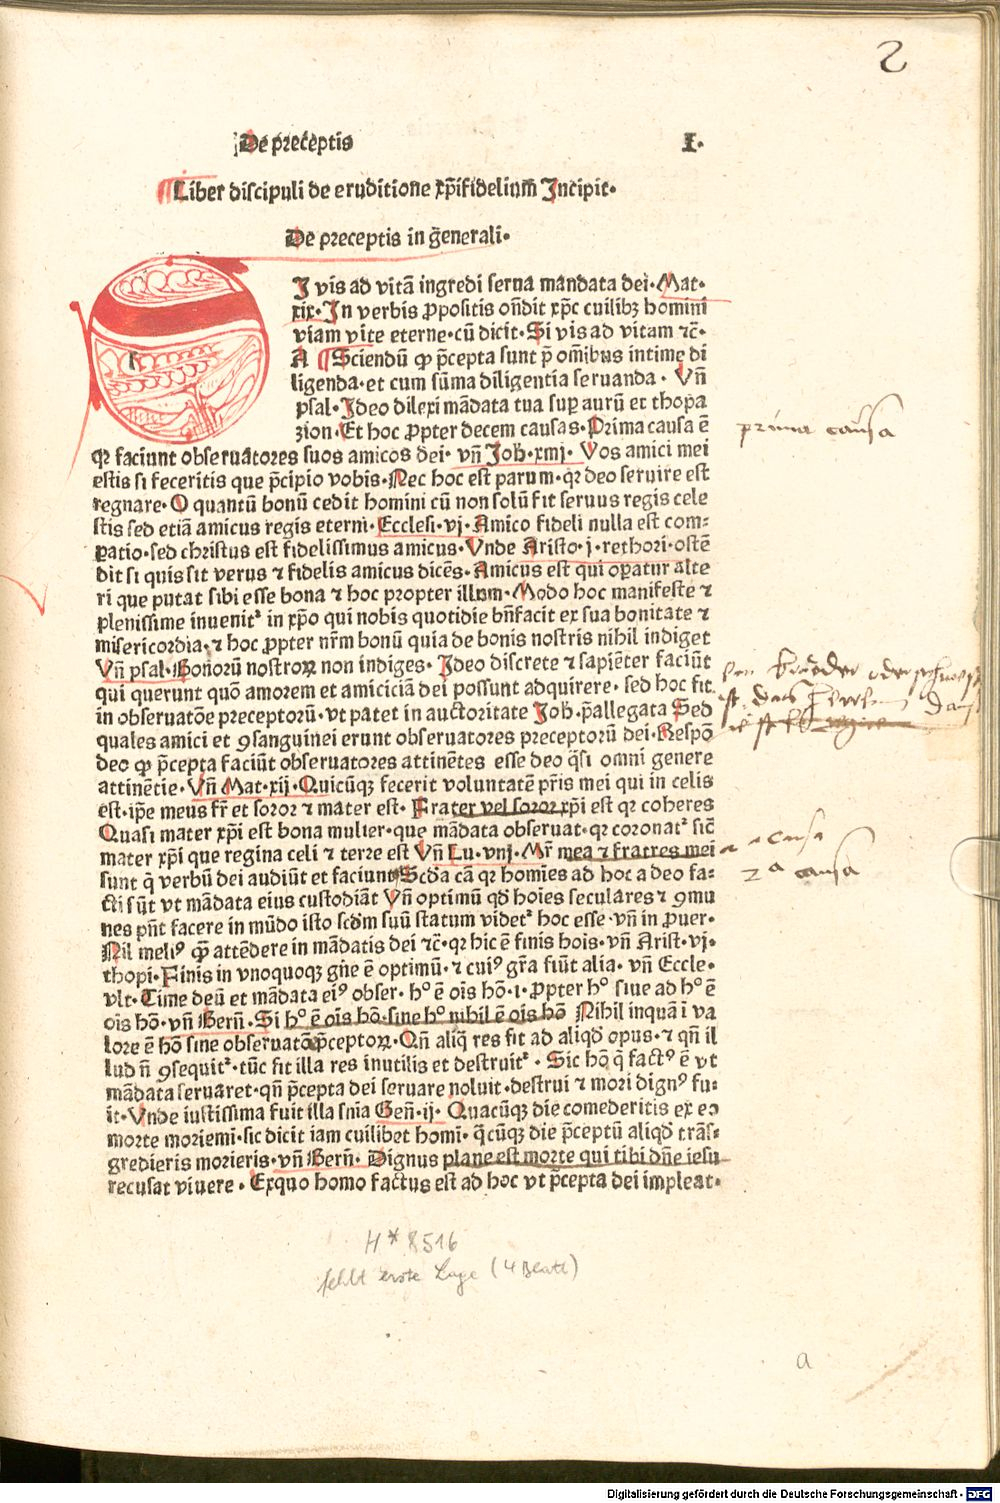 2
De preceptis I.
Liber discipuli de eruditione xp̄ifidelium̄ Incipit.
De preceptis in ḡenerali.
I vis ad vitā ingredi serua mandata dei. Mat.
xix. In verbis ꝓpositis on̄dit xp̄c cuilibꝫ homini
viam vite eterne. cū dicit. Si vis ad vitam ⁊c̄.
A Sciendū ꝙ p̄cepta sunt p̄ om̄ibus intime di
ligenda. et cum sūma diligentia seruanda. Vn̄
psal. Ideo dilexi mādata tua suꝑ aurū et thopa
zion. Et hoc ꝓpter decem causas. Prima causa ē
qꝛ faciunt obseruatores suos amicos dei. vn̄ Joh̄. xmj. Vos amici mei
estis si feceritis que p̄cipio vobis. Nec hoc est parum. qꝛ deo seruire est
regnare. O quantū bonū cedit homini cū non solū fit seruus regis cele
stis sed etiā amicus regis eterni. Ecclesi. vj. Amico fideli nulla est com⸗
ꝑatio. sed christus est fidelissimus amicus. Vnde Aristo. j. rethori. ostē
dit si quis sit verus ⁊ fidelis amicus dicēs. Amicus est qui oꝑatur alte
ri que putat sibi esse bona ⁊ hoc propter illum. Modo hoc manifeste ⁊
plenissime inuenitᷣ in xp̄o qui nobis quotidie bn̄facit ex sua bonitate ⁊
misericordia. ⁊ hoc ꝓpter nr̄m bonū quia de bonis nostris nihil indiget
Vn̄ psal. Bonorū nostroꝝ non indiges. Ideo discrete ⁊ sapiēter faciūt
qui querunt quō amorem et amiciciā dei possunt adquirere. sed hoc fit
in obseruatōe preceptorū. vt patet in auctoritate Joh̄. p̄allegata Sed
quales amici et ꝯsanguinei erunt obseruatores preceptorū dei. Respō
deo ꝙ p̄cepta faciūt obseruatores attinētes esse deo q̄si omni genere
attinētie. Vn̄ Mat. xij. Quicūqꝫ fecerit voluntatē pr̄is mei qui in celis
est. ip̄e meus fr̄ et soror ⁊ mater est. Frater vel soror xp̄i est qꝛ coheres
Quasi mater xp̄i est bona mulier. que mādata obseruat. qꝛ coronatᷣ sic̄
mater xp̄i que regina celi ⁊ terre est Vn̄ Lu. vnj. Mr̄ mea ⁊ fratres mei
sunt q̄ verbū dei audiūt et faciunt Scd̄a cā qꝛ homīes ad hoc a deo fa⸗
cti sūt vt mādata eius custodiāt Vn̄ optimū qd̄ hoīes seculares ⁊ ꝯmu
nes pn̄t facere in mūdo isto scd̄m suū statum videtᷣ hoc esse. vn̄ in ꝓuer.
Nil meliꝰ q̄ꝫ attēdere in mādatis dei ⁊c̄. qꝛ hic ē finis hois. vn̄ Arist. vj.
thopi. Finis in vnoquoqꝫ gn̄e ē optimū. ⁊ cuiꝰ gr̄a fiūt alia. vn̄ Eccle.
vlt. Time deū et mādata eiꝰ obser. h° ē oīs hō. ı. ꝓpter h° siue ad h° ē
oīs hō. vn̄ Bern̄. Si h° ē oīs hō. sine h° nihil ē oīs hō Nihil inquā i va
lore ē hō sine obseruatōe p̄ceptoꝝ. Qn̄ aliq̄ res fit ad aliqd̄ opus. ⁊ qn̄ il
lud n̄ ꝯsequitᷣ. tūc fit illa res inutilis et destruitᷣ. Sic hō q̄ factꝰ ē vt
mādata seruaret. qn̄ p̄cepta dei seruare noluit. destrui ⁊ mori dignꝰ fu⸗
it. Vnde iustissima fuit illa sn̄ia Gen̄. ij. Quacūqꝫ die comederitis ex eo
morte moriemi. sic dicit iam cuilibet homī. q̄cūqꝫ die p̄ceptū aliqd̄ trās⸗
gredieris morieris. vn̄ Bern̄. Dignus plane est morte qui tibi dn̄e iesu
recusat viuere. Exquo homo factus est ad hoc vt p̄cepta dei impleat.
prima causa
2a causa
H* 8516
fehlt erste Lage (4 Blatt)
a
Digitalisierung gefördert durch die Deutsche Forschungsgemeinschaft - DFG